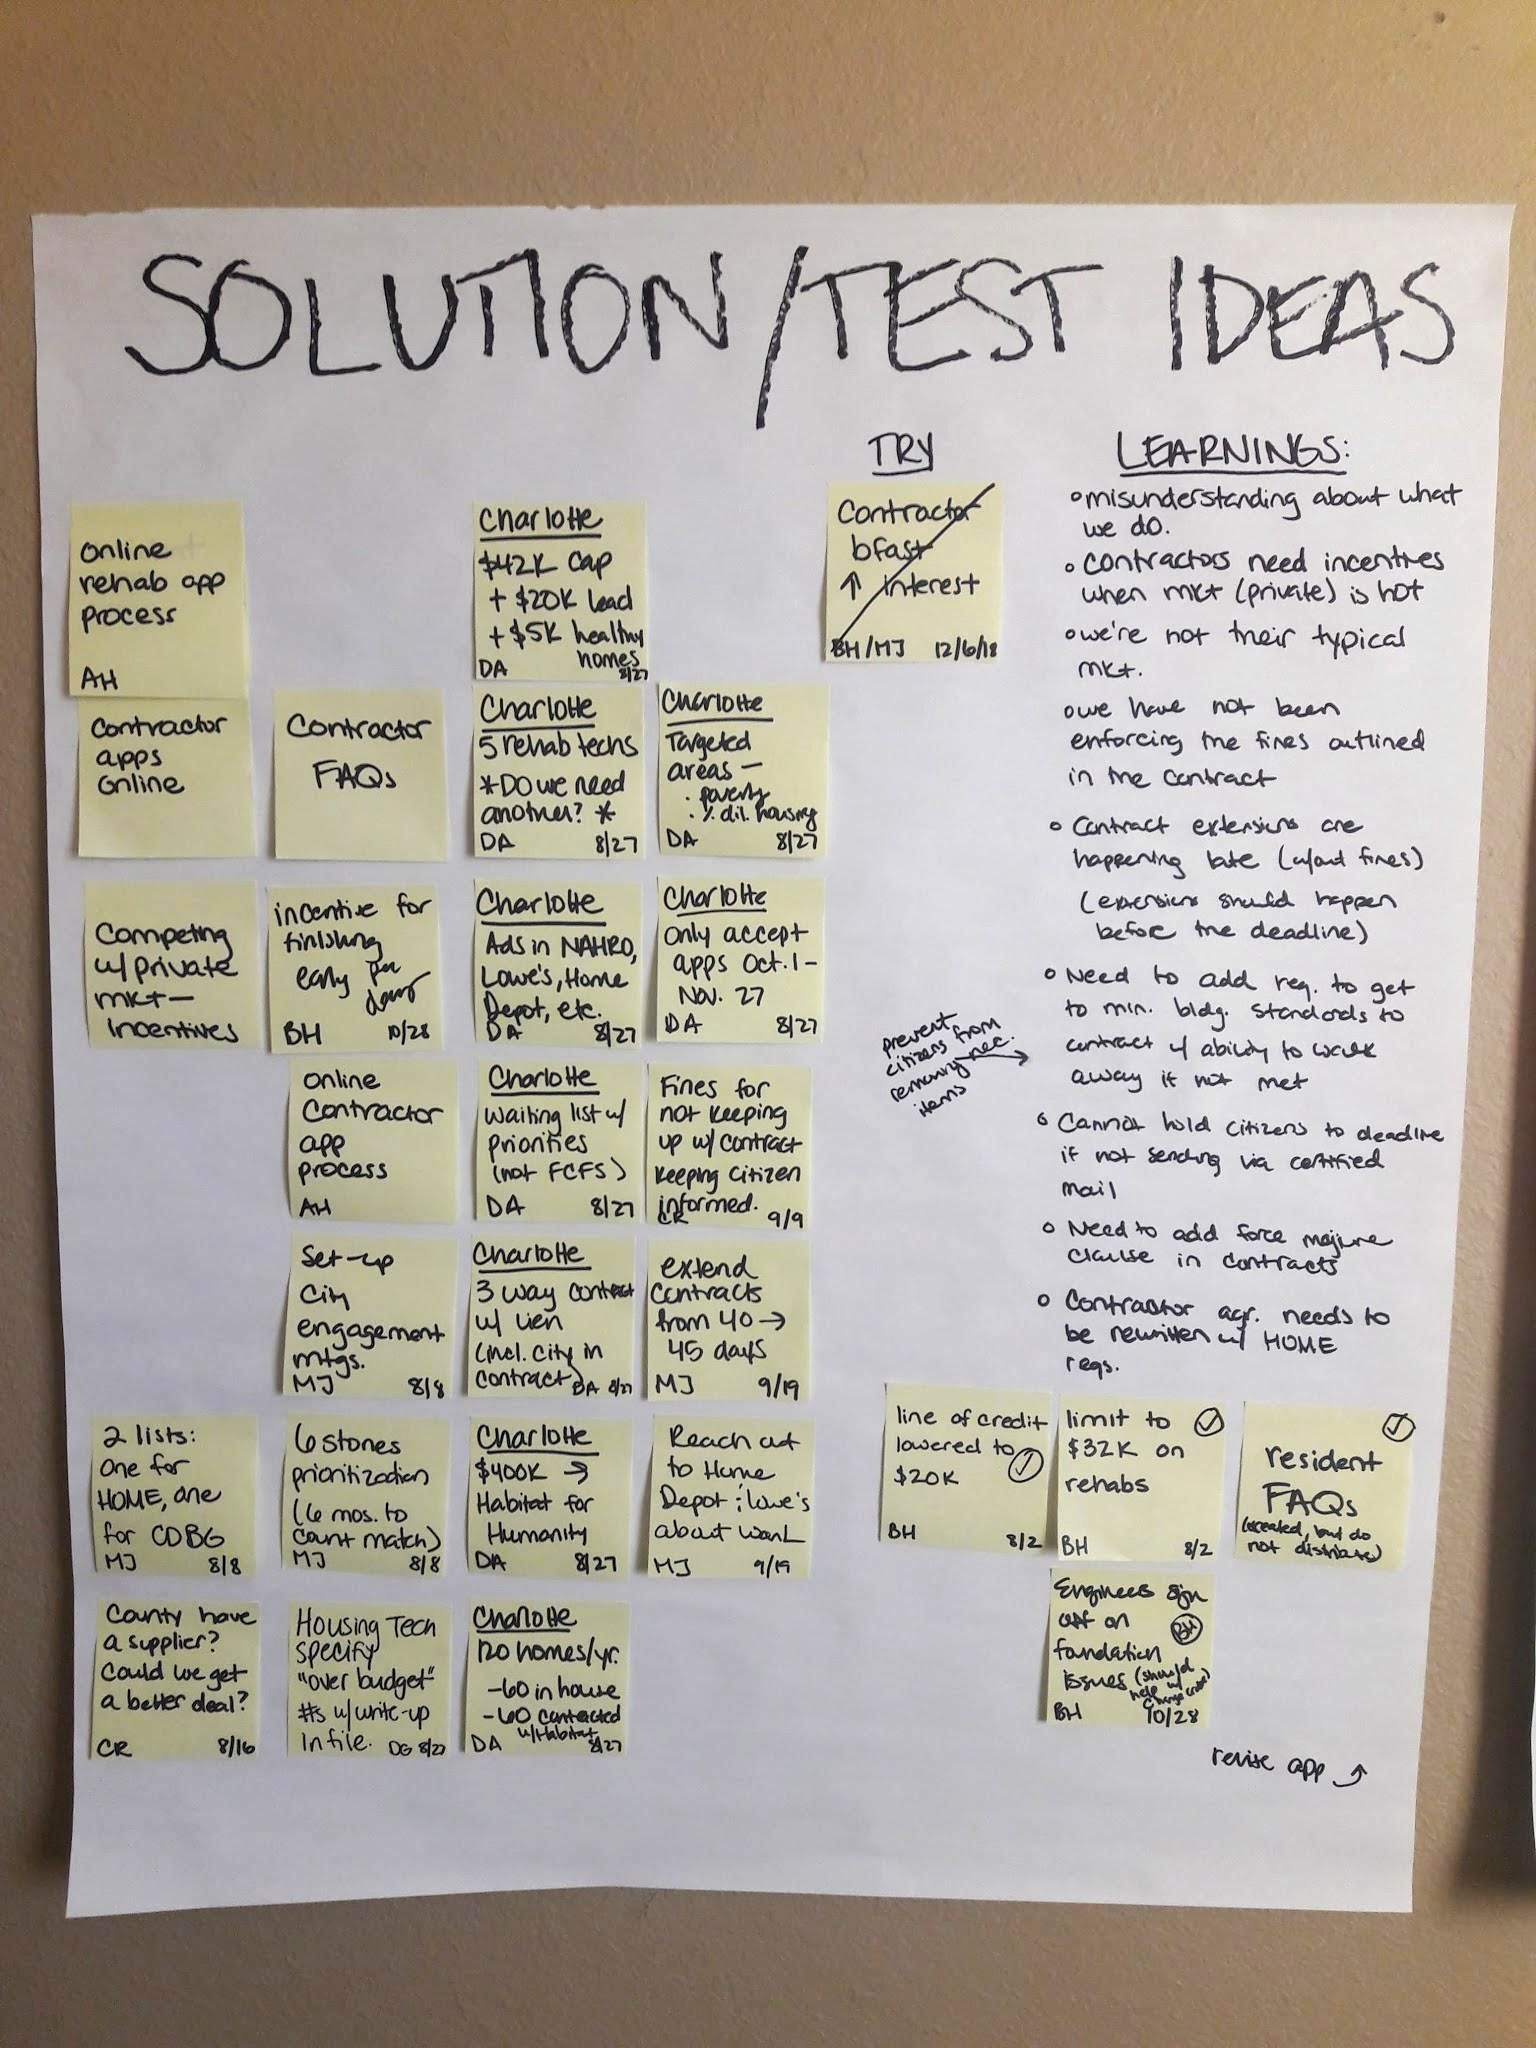 SOLUTION/TEST IDEAS
online
rehab app
process
AH
Contractor
apps
online
Competing
w/private
mkt—
incentives
2 lists:
one for
HOME, one
for CDBG
MJ 8/8
County have
a supplier?
Could we get
a better deal?
CR 8/16
Contractor
FAQs
incentive for
finishing
early per
day
BH 10/28
online
Contractor
app
process
AH
Set-up
City
engagement
mtgs.
MJ 8/8
6 stones
prioritization
(6 mos. to
count match)
MJ 8/8
Housing Tech
specify
"over budget"
#s w/write-up
in file. DG 8/27
Charlotte
$42K cap
+ $20K lead
+ $5K healthy
homes
DA 8/27
Charlotte
5 rehab techs
*Do we need
another? *
DA 8/27
Charlotte
Ads in NAHRO,
Lowe's, Home
Depot, etc.
DA 8/27
Charlotte
waiting list w/
priorities
(not FCFS)
DA 8/27
Charlotte
3 way contract
w/ lien
(incl. city in
contract) DA 8/27
Charlotte
$400K →
Habitat for
Humanity
DA 8/27
Charlotte
120 homes/yr.
-60 in house
-60 contracted
w/Habitat
DA 8/27
Charlotte
Targeted
areas —
· poverty
· % dil. housing
DA 8/27
Charlotte
only accept
apps Oct. 1 -
Nov. 27
DA 8/27
Fines for
not keeping
up w/ contract
keeping citizen
informed.
CR 9/9
extend
contracts
from 40 →
45 days
MJ 9/19
Reach out
to Home
Depot & Lowe's
about want
MJ 9/19
TRY
Contractor
bfast
↑ interest
BH/MJ 12/6/18
LEARNINGS:
• misunderstanding about what
we do.
• contractors need incentives
when mkt (private) is hot
• we're not their typical
mkt.
• we have not been
enforcing the fines outlined
in the contract
• Contract extensions are
happening late (w/out fines)
(extensions should happen
before the deadline)
• Need to add req. to get
to min. bldg. standards to
contract w/ ability to walk
away if not met
prevent
citizens from
removing nec. →
items
• Cannot hold citizens to deadline
if not sending via certified
mail
• Need to add force majure
clause in contracts
• Contractor agr. needs to
be rewritten w/ HOME
reqs.
line of credit
lowered to
$20K ✓
BH 8/2
limit to ✓
$32K on
rehabs
BH 8/2
✓
resident
FAQs
(created, but do
not distribute)
Engineers sign
off on
foundation BH
issues (should
help w/
change orders)
BH 10/28
revise app ↗